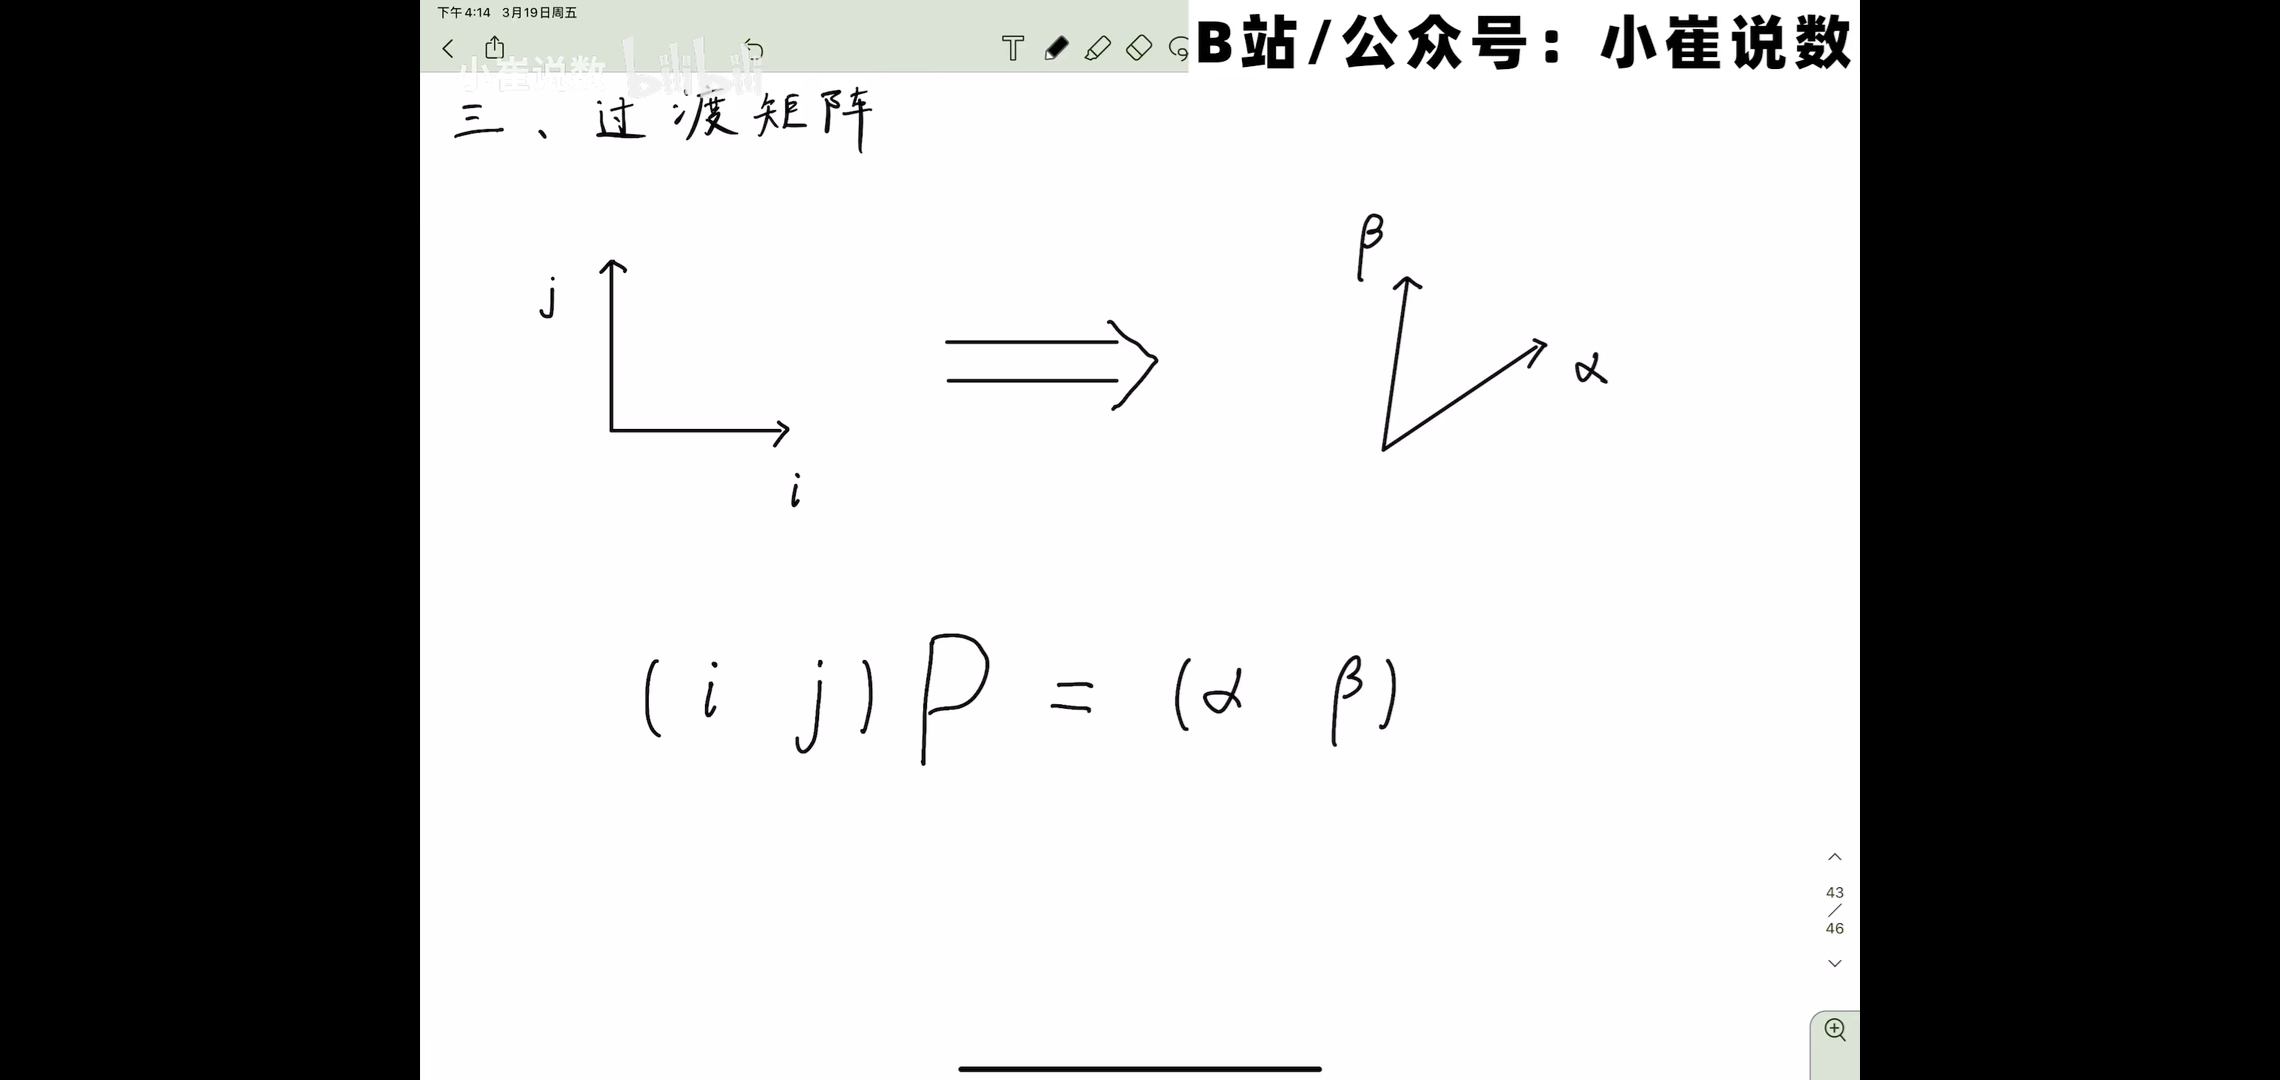 下午4:14 3月19日周五
B站/公众号：小崔说数
小崔说数 bilibili
T
三、过渡矩阵
β
j
α
i
(i j) P = (α β)
43
/
46